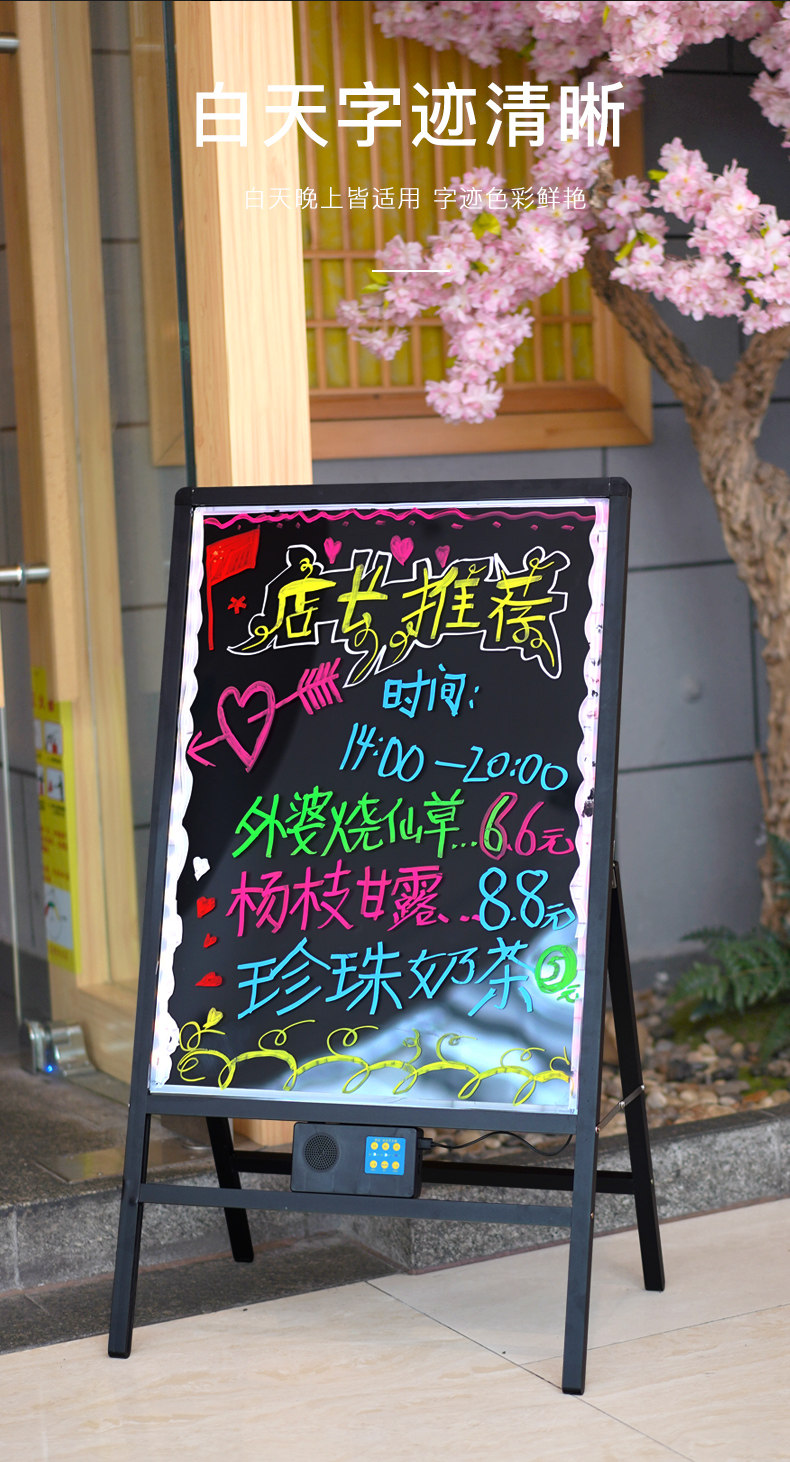 白天字迹清晰
白天晚上皆适用 字迹色彩鲜艳
店长推荐
时间:
14:00—20:00
外婆烧仙草...6.6元
杨枝甘露...8.8元
珍珠奶茶5元